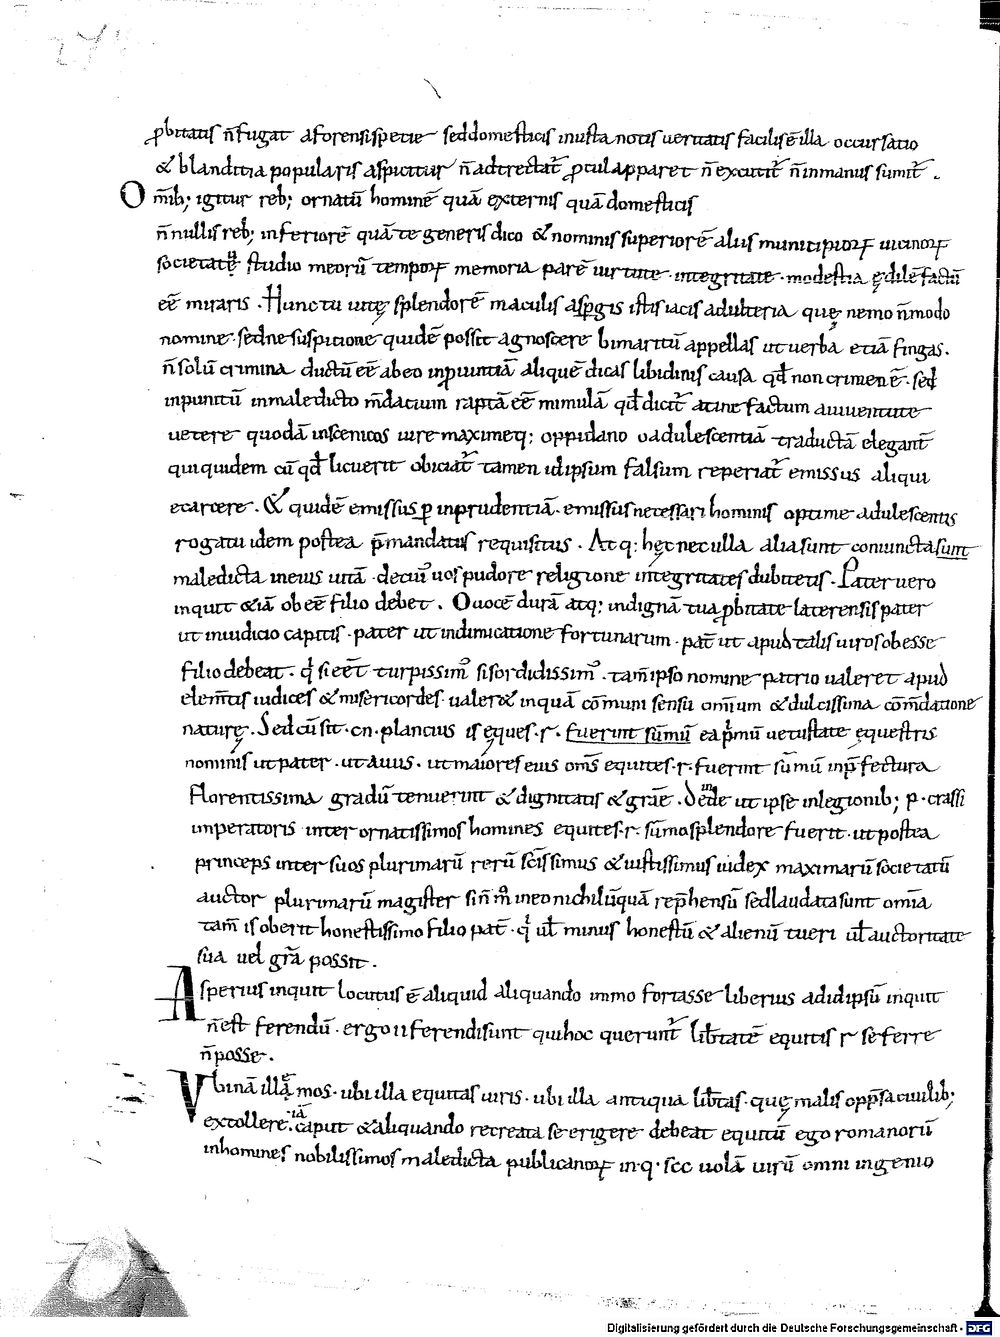 ꝓbitatis n̄ fugat aforensispetie sed domesticis inusta notis ueritatis facilis ē illa occursatio
& blanditia popularis aspicitur n̄ adtrectat̄ ꝓcul apparet n̄ excutit̄ n̄ inmanus sumit̄.
Om̄ib; igitur reb; ornatū hominē quā externis quā domesticis
n̄ nullis reb; inferiorē quā te generis dico & nominis superiorē aliis municipiorꝝ uicinorꝝ
societatūq̄ studio meorū temporꝝ memoria parē uirtute integritate modestia ędilē factū
eē miraris. Hunc tu uitę splendorē maculis aspgis istis iacis adulteria quę nemo n̄ modo
nomine sed ne suspitione quidē possit agnoscere bimaritū appellas ut uerba etiā fingas.
n̄ solū crimina ductū eē abeo inꝓuintiā aliquē dicas libidinis causa qd̄ non crimen ē. sed
inpunitū inmaledicto m̄datium raptā eē mimulā qd̄ dicit̄ atine factum a iuuentute
uetere quodā inscenicos iure maximeq; oppidano o adulescentiā traductā elegant̄
qui quidem cū qd̄ licuerit obiciat̄ tamen id ipsum falsum reperiat̄ emissus aliqui
ecarcere. & quidē emissus ꝑ inprudentiā emissus necessarı hominis optime adulescentis
rogatu idem postea p̄mandatis requisitus. Atq; hęc nec ulla alia sunt coniuncta sunt
maledicta ineius uitā decui' uos pudore religione integritates dubitetis. Pater uero
inquit &iā ob eē filio debet. O uocē durā atq; indignā tua ꝓbitate laterensis pater
ut iniudicio capitis pater ut indimicatione fortunarum pat̄ ut apud talis uiros obesse
filio debeat. q̄ si eēt turpissim' si sordidissim'. tam̄ ipso nomine patrio ualeret apud
elem̄tis iudices & misericordes ualer& inquā cōmuni sensu om̄ium & dulcissima com̄datione
naturę. Sed cū sit. cn. plancius is ęques. r. fuerint sūmū ea p̄mū uetustate ęquestris
nominis ut pater. ut auus. ut maiores eius om̄s equites. r. fuerint sūmū inp̄fectura
florentissima gradū tenuerint & dignitatis & grāe. Deinde ut ipse inlegionib; p. crassi
imperatoris inter ornatissimos homines equites. r. sūmo splendore fuerit ut postea
princeps inter suos plurimarū rerū sc̄issimus & iustissimus iudex maximarū societatū
auctor plurimarū magister si n̄ m̄ ineo nichil ūquā rep̄hensū sed laudata sunt omīa
tam̄ is oberit honestissimo filio pat̄ q' ul̄ minus honestū & alienū tueri ul̄ auctoritate
sua uel grā possit.
Asperius inquit locutus ē aliquid aliquando immo fortasse liberius ad id ipsū inquit
n̄ est ferendū. ergo ii ferendi sunt qui hoc querunt̄ lib̄tatē equitis r̄ se ferre
n̄ posse.
Vbinā illę mos. ubi illa equitas iuris. ubi illa antiqua lib̄tas. quę malis opp̄sa ciuilib;
extollere iā caput & aliquando recreata se erigere debeat equitū ego romanorū
inhomines nobilissimos maledicta publicanorꝝ in. q. sce uolā uirū omni ingenio
Digitalisierung gefördert durch die Deutsche Forschungsgemeinschaft - DFG